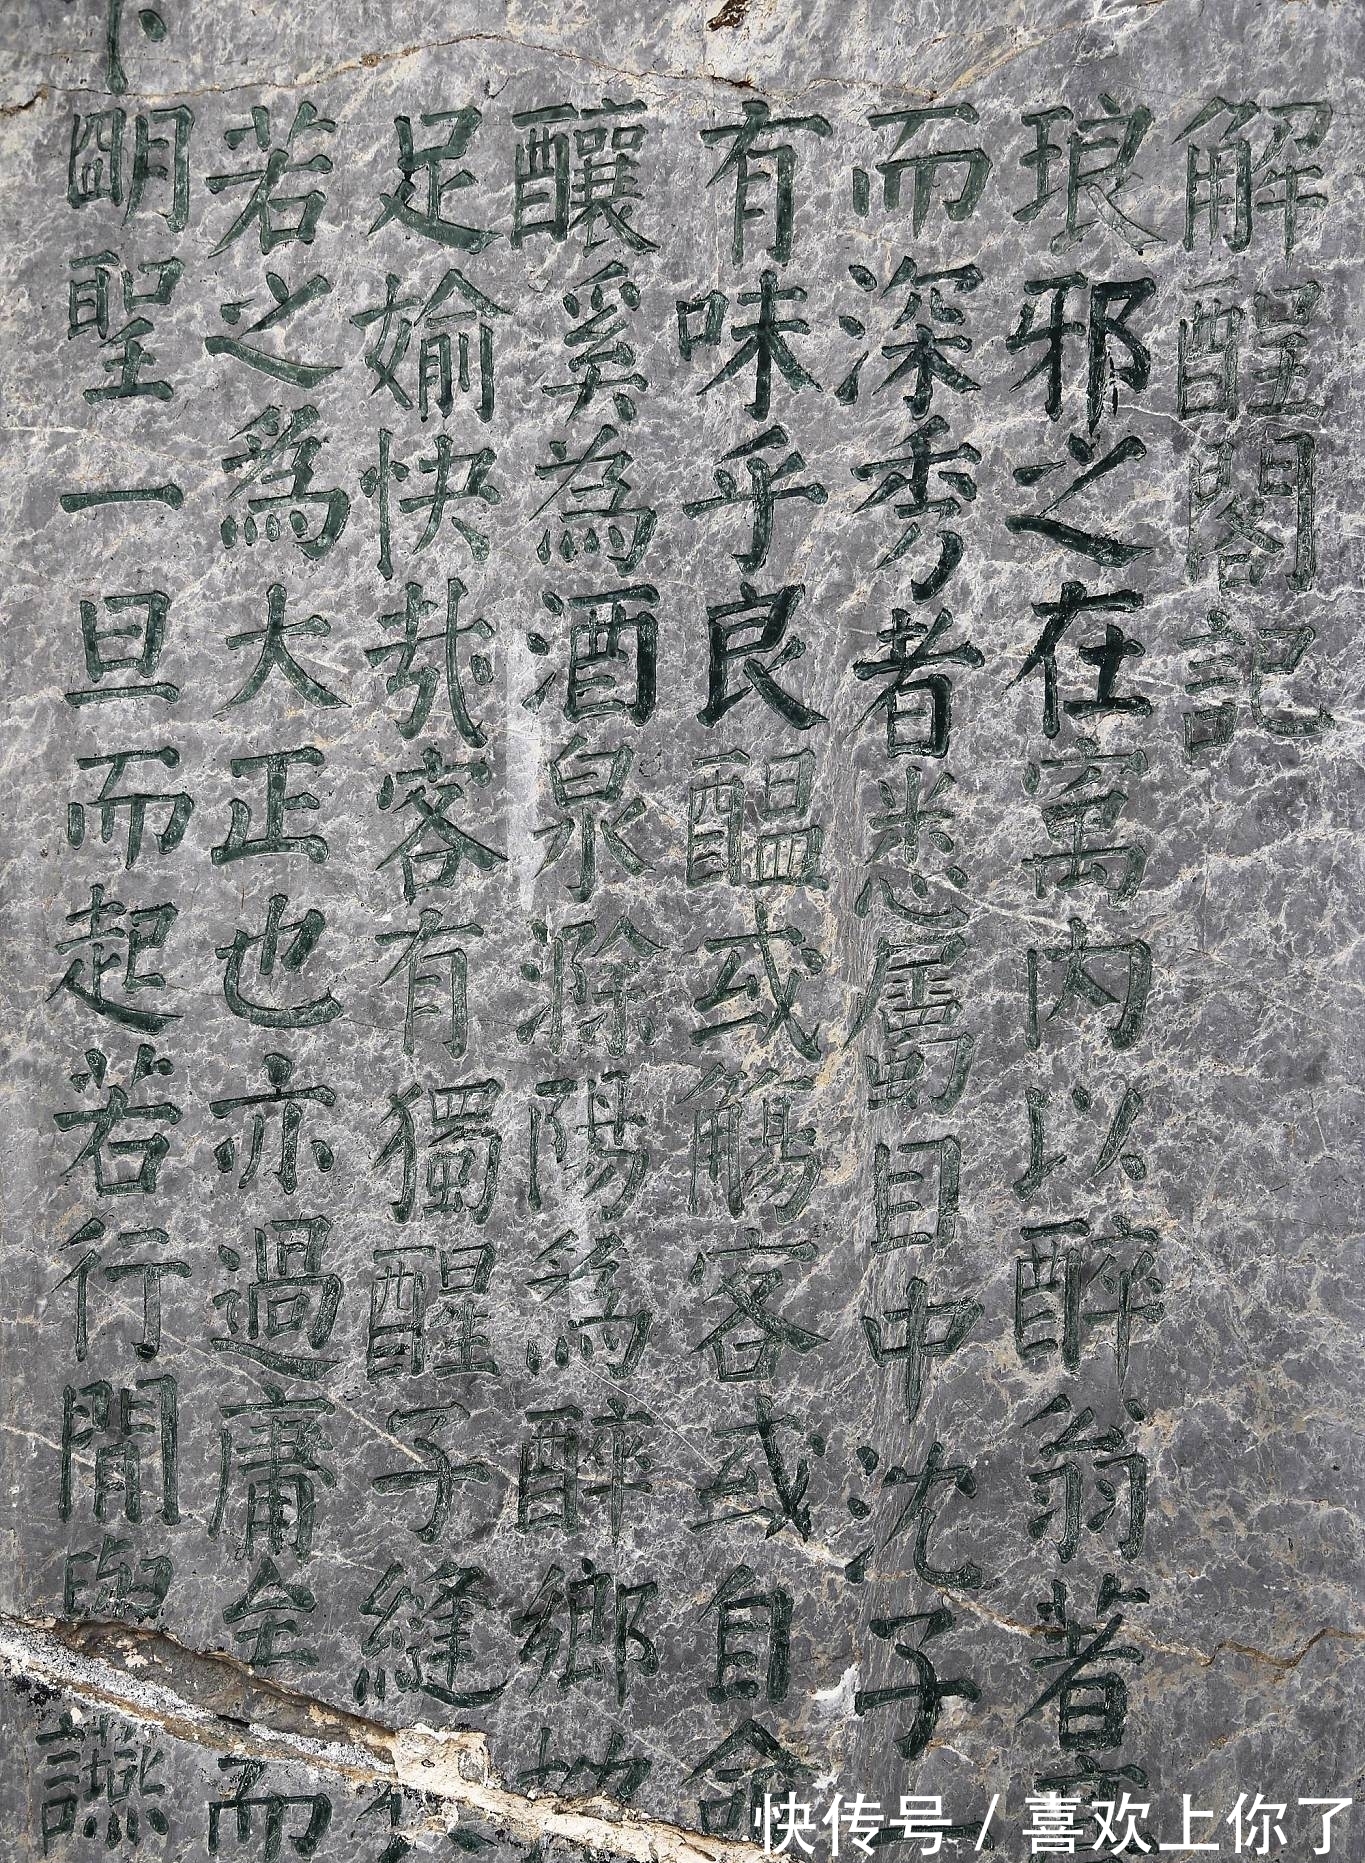 解酲閣記
琅邪之在寓內以醉翁著
而深秀者悉屬目中沈子
有味乎良醞或觴客或自命
釀奚為酒泉滁陽為醉鄉
足婾快哉客有獨醒子縫
若之為大正也亦過庸至而
明聖一旦而起若行閒與讌
快传号/喜欢上你了